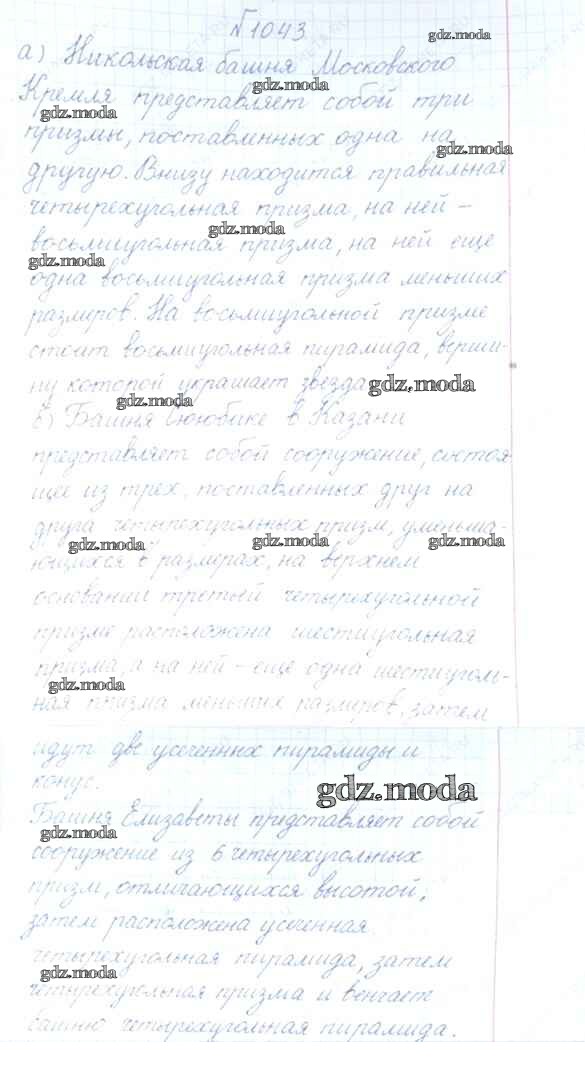 №1043
gdz.moda
а) Никольская башня Московского
gdz.moda
Кремля представляет собой три
gdz.moda
призмы, поставленных одна на
gdz.moda
другую. Внизу находится правильная
четырехугольная призма, на ней –
gdz.moda
восьмиугольная призма, на ней еще
gdz.moda
одна восьмиугольная призма меньших
размеров. На восьмиугольной призме
стоит восьмиугольная пирамида, верши-
ну которой украшает звезда
gdz.moda
gdz.moda
б) Башня Сююбике в Казани
представляет собой сооружение, состоя
щее из трех, поставленных друг на
друга четырехугольных призм, уменьша-
gdz.moda gdz.moda gdz.moda
ющихся в размерах, на верхнем
основании третьей четырехугольной
призме расположена шестиугольная
призма, а на ней – еще одна шестиуголь-
gdz.moda
ная призма меньших размеров, затем
идут две усеченных пирамиды и
конус.
gdz.moda
Башня Елизаветы представляет собой
gdz.moda
сооружение из 6 четырехугольных
призм, отличающихся высотой;
затем расположена усеченная
четырехугольная пирамида, затем
gdz.moda
четырехугольная призма и венчает
башню четырехугольная пирамида.